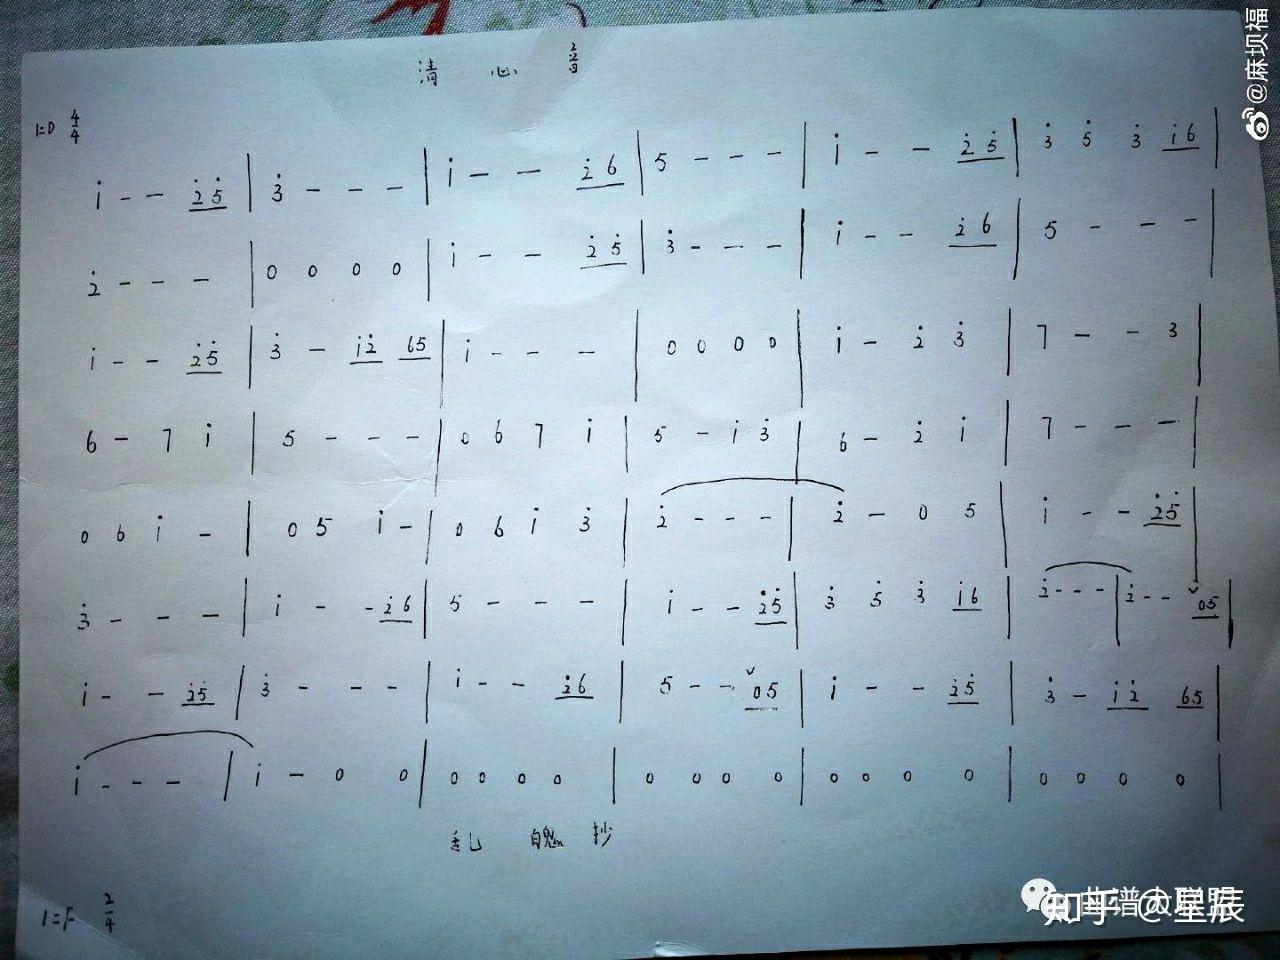 清 心 音
1=D 4/4
i - - 2̇5̇ | 3̇ - - - | i - - 2̇6 | 5 - - - | i - - 2̇5̇ | 3̇ 5̇ 3̇ i6 |
2̇ - - - | 0 0 0 0 | i - - 2̇5̇ | 3̇ - - - | i - - 2̇6 | 5 - - - |
i - - 2̇5̇ | 3̇ - i2̇ 65 | i - - - | 0 0 0 0 | i - 2̇ 3̇ | 7 - - 3 |
6 - 7 i | 5 - - - | 0 6 7 i | 5 - i 3̇ | 6 - 2̇ i | 7 - - - |
0 6 i - | 0 5 i - | 0 6 i 3̇ | 2̇ - - - | 2̇ - 0 5 | i - - 2̇5̇ |
3̇ - - - | i - - 2̇6 | 5 - - - | i - - 2̇5̇ | 3̇ 5̇ 3̇ i6 | 2̇ - - - | 2̇ - - 05 |
i - - 2̇5̇ | 3̇ - - - | i - - 2̇6 | 5 - - 05 | i - - 2̇5̇ | 3̇ - i2̇ 65 |
i - - - | i - 0 0 | 0 0 0 0 | 0 0 0 0 | 0 0 0 0 | 0 0 0 0 |
乱 魄 抄
1=F 2/4
@麻坝福
知乎 @星辰